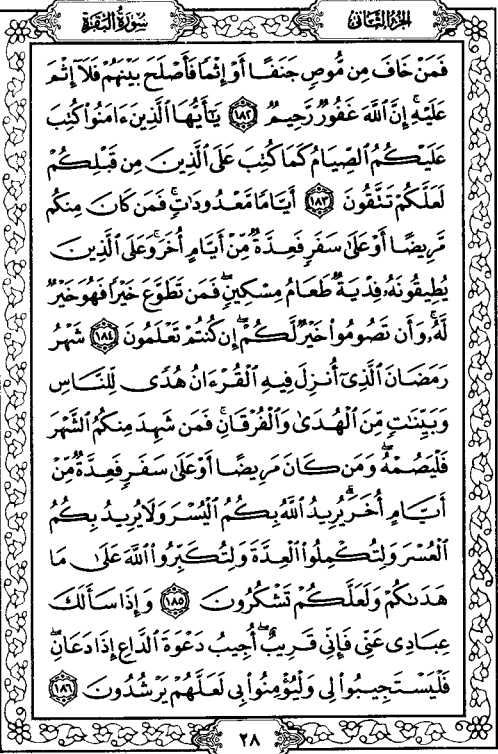 الجزء الثاني
سورة البقرة
فَمَنْ خَافَ مِن مُّوصٍ جَنَفًا أَوْ إِثْمًا فَأَصْلَحَ بَيْنَهُمْ فَلَآ إِثْمَ
عَلَيْهِ ۚ إِنَّ ٱللَّهَ غَفُورٌ رَّحِيمٌ ١٨٢ يَٰٓأَيُّهَا ٱلَّذِينَ ءَامَنُوا۟ كُتِبَ
عَلَيْكُمُ ٱلصِّيَامُ كَمَا كُتِبَ عَلَى ٱلَّذِينَ مِن قَبْلِكُمْ
لَعَلَّكُمْ تَتَّقُونَ ١٨٣ أَيَّامًا مَّعْدُودَٰتٍ ۚ فَمَن كَانَ مِنكُم
مَّرِيضًا أَوْ عَلَىٰ سَفَرٍ فَعِدَّةٌ مِّنْ أَيَّامٍ أُخَرَ ۚ وَعَلَى ٱلَّذِينَ
يُطِيقُونَهُۥ فِدْيَةٌ طَعَامُ مِسْكِينٍ ۖ فَمَن تَطَوَّعَ خَيْرًا فَهُوَ خَيْرٌ
لَّهُۥ ۚ وَأَن تَصُومُوا۟ خَيْرٌ لَّكُمْ ۖ إِن كُنتُمْ تَعْلَمُونَ ١٨٤ شَهْرُ
رَمَضَانَ ٱلَّذِىٓ أُنزِلَ فِيهِ ٱلْقُرْءَانُ هُدًى لِّلنَّاسِ
وَبَيِّنَٰتٍ مِّنَ ٱلْهُدَىٰ وَٱلْفُرْقَانِ ۚ فَمَن شَهِدَ مِنكُمُ ٱلشَّهْرَ
فَلْيَصُمْهُ ۖ وَمَن كَانَ مَرِيضًا أَوْ عَلَىٰ سَفَرٍ فَعِدَّةٌ مِّنْ
أَيَّامٍ أُخَرَ ۗ يُرِيدُ ٱللَّهُ بِكُمُ ٱلْيُسْرَ وَلَا يُرِيدُ بِكُمُ
ٱلْعُسْرَ وَلِتُكْمِلُوا۟ ٱلْعِدَّةَ وَلِتُكَبِّرُوا۟ ٱللَّهَ عَلَىٰ مَا
هَدَىٰكُمْ وَلَعَلَّكُمْ تَشْكُرُونَ ١٨٥ وَإِذَا سَأَلَكَ
عِبَادِى عَنِّى فَإِنِّى قَرِيبٌ ۖ أُجِيبُ دَعْوَةَ ٱلدَّاعِ إِذَا دَعَانِ ۖ
فَلْيَسْتَجِيبُوا۟ لِى وَلْيُؤْمِنُوا۟ بِى لَعَلَّهُمْ يَرْشُدُونَ ١٨٦
٢٨